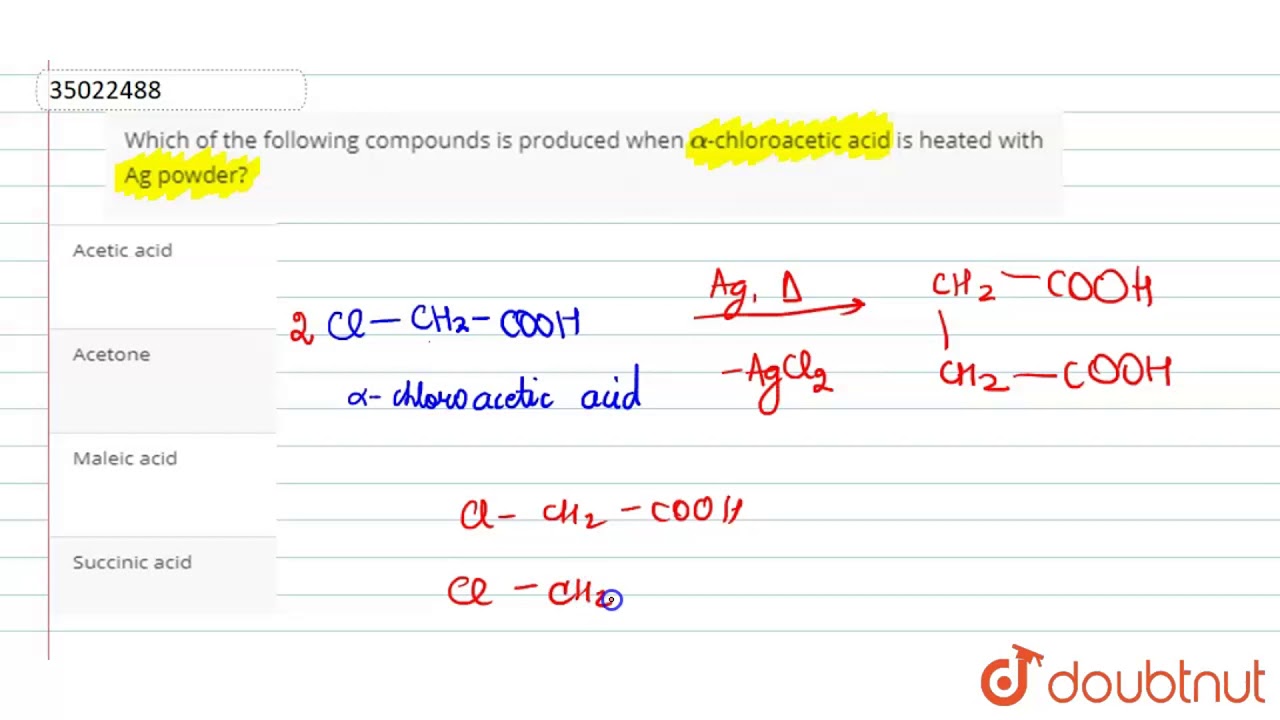 35022488
Which of the following compounds is produced when α-chloroacetic acid is heated with
Ag powder?
Acetic acid
Acetone
Maleic acid
Succinic acid
2 Cl — CH2 — COOH
α- chloroacetic acid
Ag, Δ
- AgCl2
CH2 — COOH
|
CH2 — COOH
Cl — CH2 — COOH
Cl — CH2
doubtnut